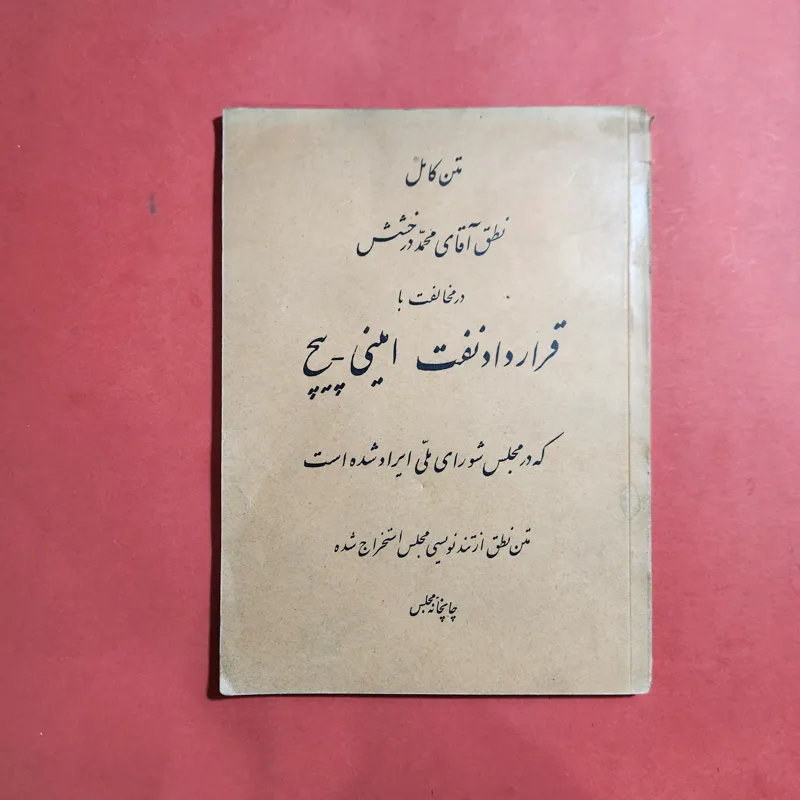 متن کامل
نطق آقای محمّد درخشش
در مخالفت با
قرارداد نفت امینی - پیچ
که در مجلس شورای ملّی ایراد شده است
متن نطق از تندنویسی مجلس استخراج شده
چاپخانه مجلس